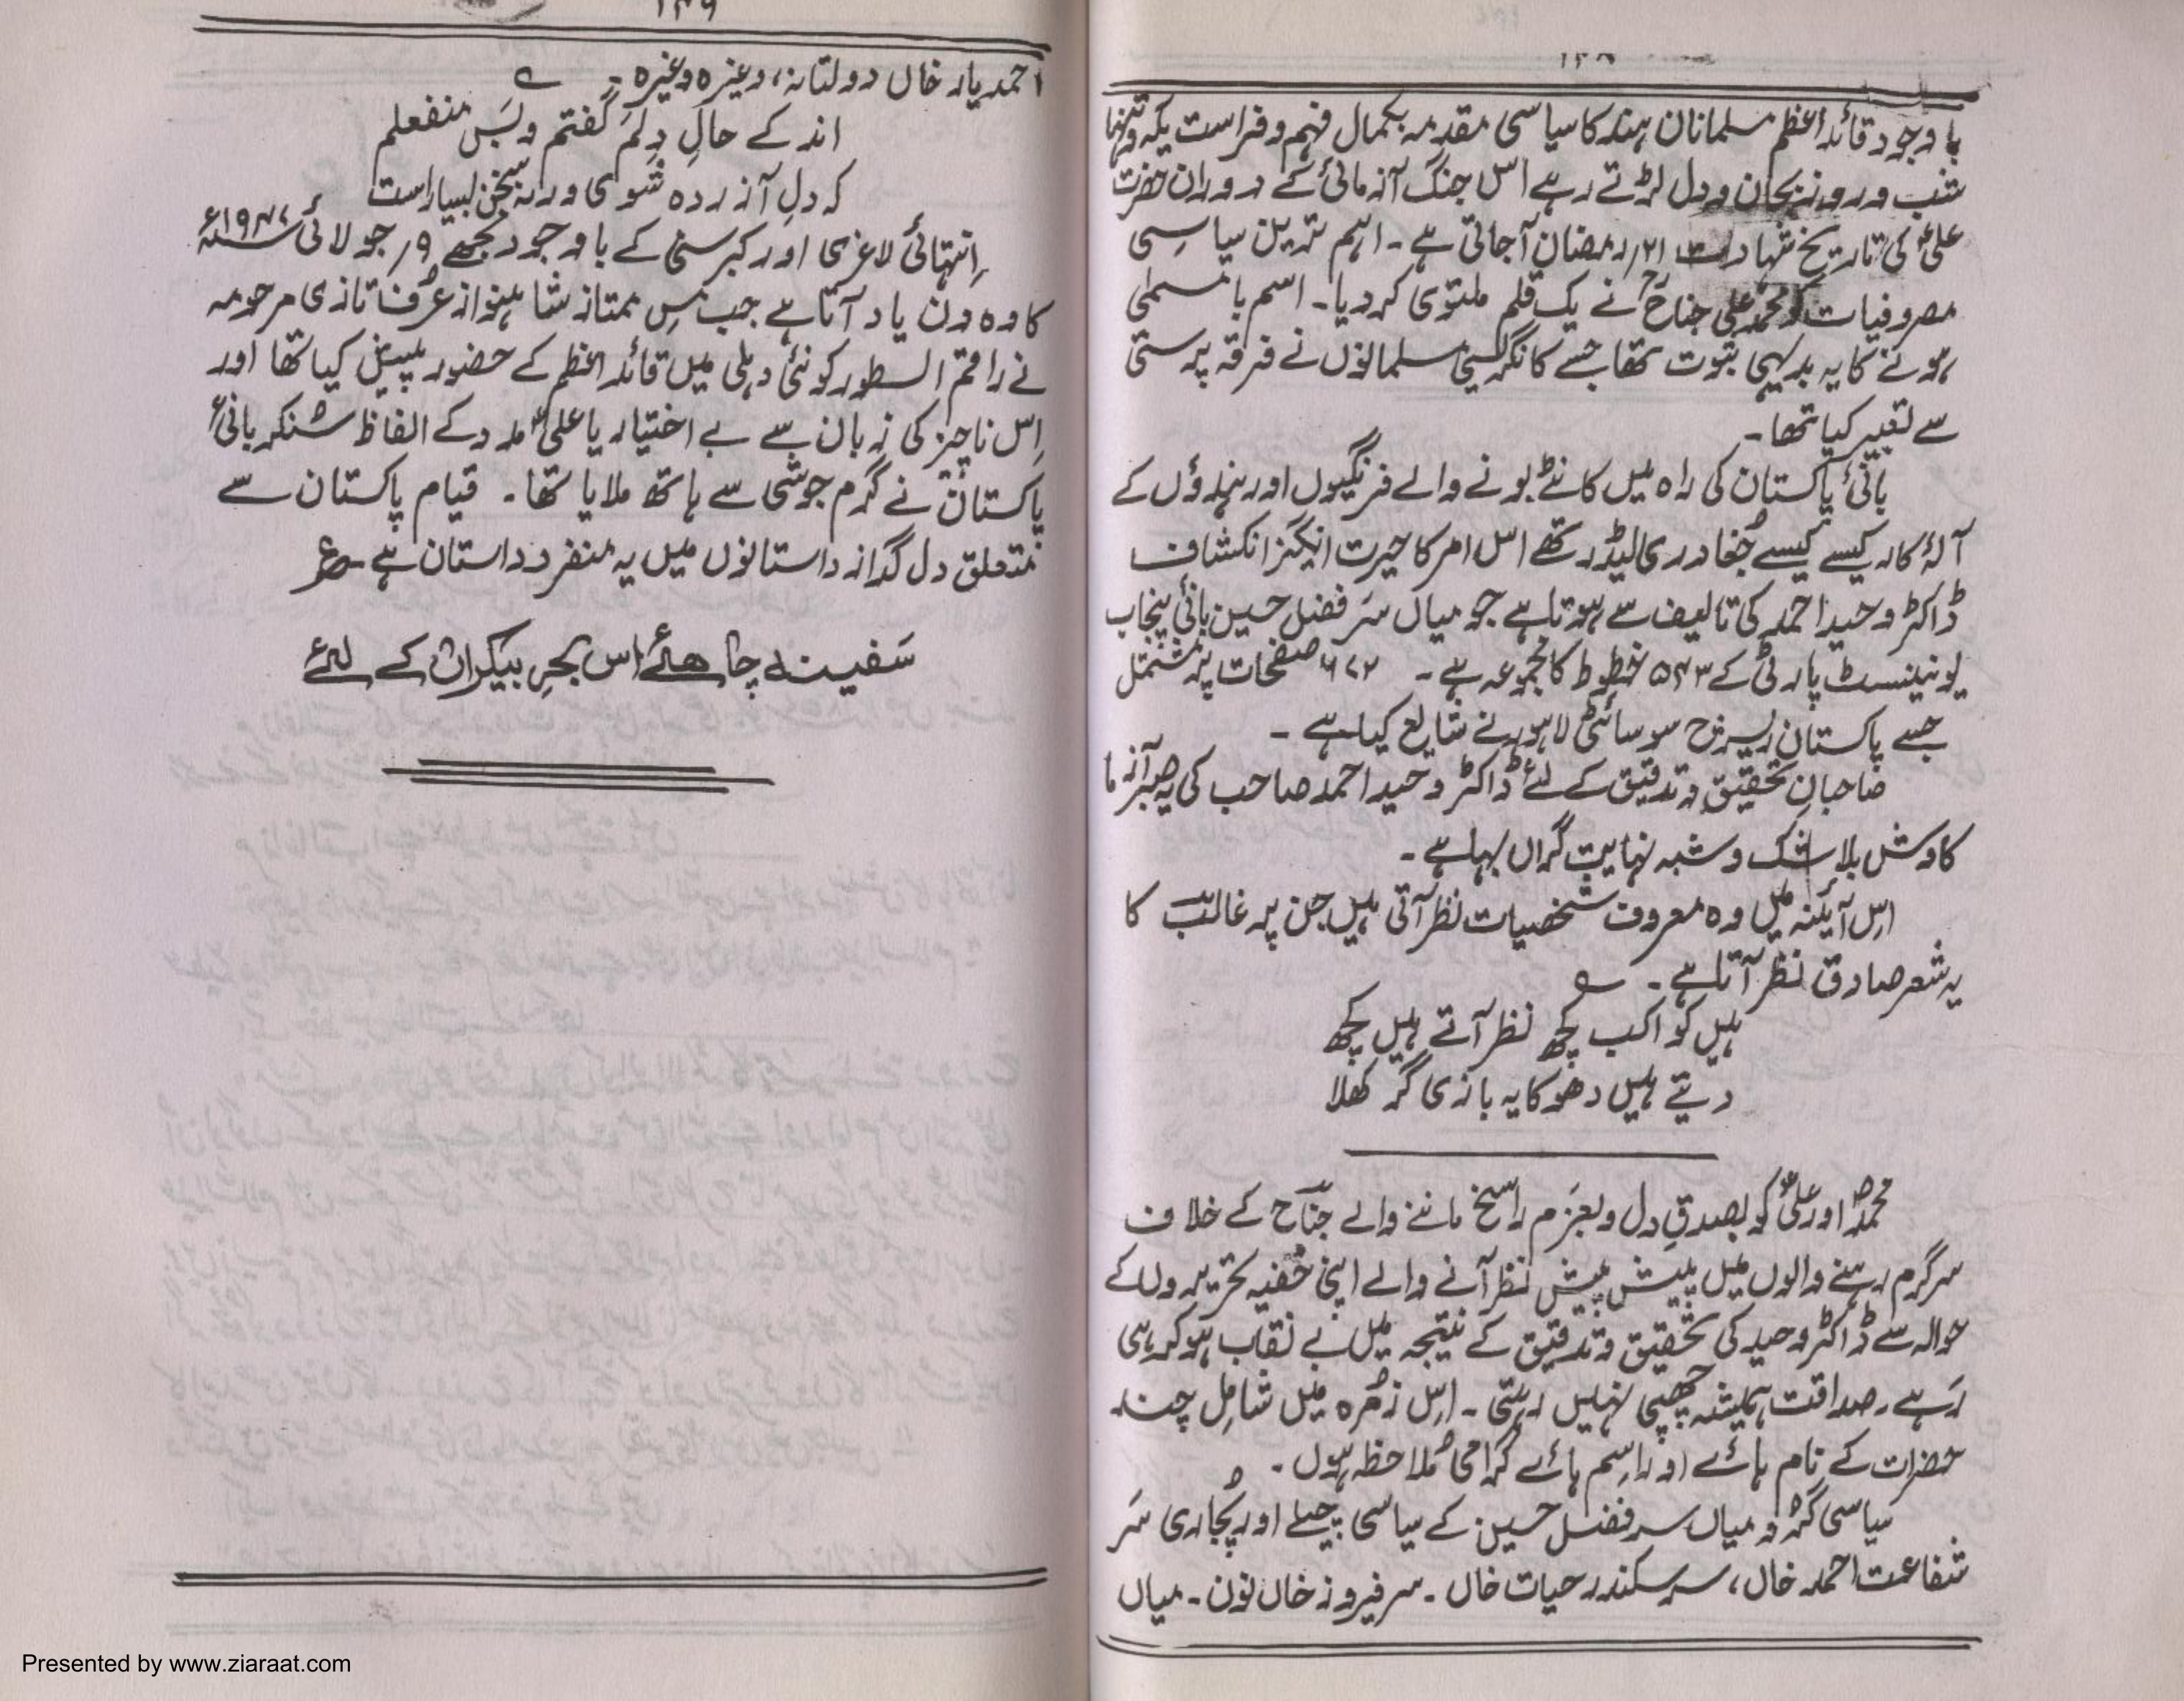 ۱۴۸
باوجود قائد اعظم مسلمانان ہند کا سیاسی مقدمہ بکمال فہم و فراست یکہ و تنہا
شب و روز بجان و دل لڑتے رہے اس جنگ آزمائی کے دوران حضرت
علیؑ کی تاریخ شہادت ۲۱؍رمضان آجاتی ہے۔ اہم ترین سیاسی
مصروفیات کو محمد علی جناحؒ نے یک قلم ملتوی کر دیا۔ اسم بامسمیٰ
ہونے کا یہ بدیہی ثبوت تھا جسے کانگریسی مسلمانوں نے فرقہ پرستی
سے تعبیر کیا تھا۔
بانئ پاکستان کی راہ میں کانٹے بونے والے فرنگیوں اور ہندوؤں کے
آلۂ کار کیسے کیسے جُغادری لیڈر تھے اس امر کا حیرت انگیز انکشاف
ڈاکٹر وحید احمد کی تالیف سے ہوتا ہے جو میاں سَر فضل حسین بانئ پنجاب
یونینسٹ پارٹی کے ۵۴۳ خطوط کا مجموعہ ہے۔ ۶۷۲ صفحات پر مشتمل
جسے پاکستان ریسرچ سوسائٹی لاہور نے شایع کیا ہے۔
صاحبانِ تحقیق و تدقیق کے لئے ڈاکٹر وحید احمد صاحب کی یہ صبر آزما
کاوش بلا شک و شبہ نہایت گراں بہا ہے۔
اِس آئینہ میں وہ معروف شخصیات نظر آتی ہیں جن پر غالبؔ کا
یہ شعر صادق نظر آتا ہے۔ ؎
ہیں کواکب کچھ نظر آتے ہیں کچھ
دیتے ہیں دھوکا یہ بازی گر کھلا
محمدؐ اور علیؑ کو بصدقِ دل و بعزمِ راسخ ماننے والے جناحؒ کے خلاف
سرگرم رہنے والوں میں پیش پیش نظر آنے والے اپنی خُفیہ تحریروں کے
حوالہ سے ڈاکٹر وحید کی تحقیق و تدقیق کے نتیجہ میں بے نقاب ہو کر رہی
رَہے۔ صداقت ہمیشہ چُھپی نہیں رہتی۔ اِس زمُرہ میں شامِل چند
حضرات کے نام ہائے اور اِسم ہائے گرامی مُلاحظہ ہوں۔
سیاسی گُرُو میاں سر فضل حسین کے سیاسی چیلے اور پُجاری سَر
شفاعت احمد خاں، سر سکندر حیات خاں۔ سر فیروز خاں نون۔ میاں
۱۴۹
احمد یار خاں دولتانہ، وغیرہ وغیرہ۔ ؎
اند کے حالِ دِلَم گفتم و بَس منفعلم
کہ دلِ آزردہ شوی ورنہ سخن بسیار است
اِنتہائی لاغری اور کبر سنی کے باوجود مجھے ۹؍جولائی ۱۹۴۷ء
کا وہ دن یاد آتا ہے جب مِس ممتاز شاہنواز عرُف تازی مرحومہ
نے راقم السطور کو نئی دہلی میں قائد اعظم کے حضور پیش کیا تھا اور
اِس ناچیز کی زبان سے بے اختیار یا علیؑ مدد کے الفاظ سُنکر بانئ
پاکستانؒ نے گرم جوشی سے ہاتھ ملایا تھا۔ قیام پاکستان سے
متعلق دل گداز داستانوں میں یہ منفرد داستان ہے۔ ع
سَفینہ چاہئے اس بحرِ بیکراں کے لئے
Presented by www.ziaraat.com